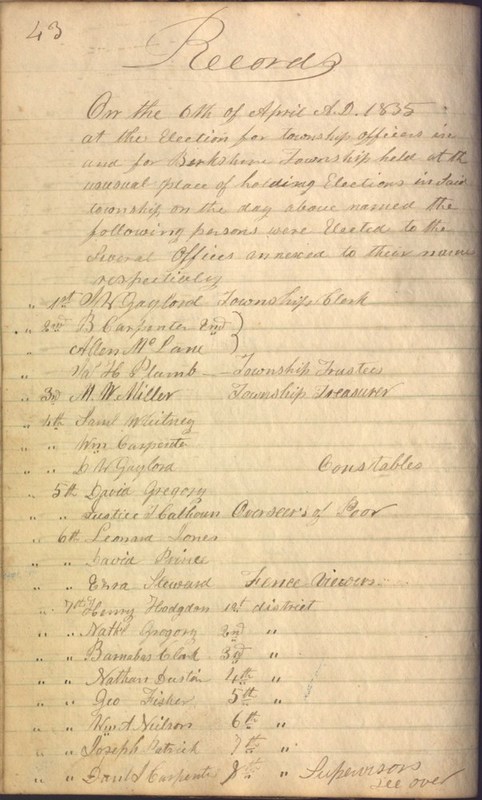 43
Records
On the 6th of April A.D. 1835
at the Election for township officers in
and for Berkshire Township held at the
unusual place of holding Elections in said
township, on the day above named the
following persons were Elected to the
Several Offices annexed to their names
respectively
" 1st Gaylord Township Clerk
" 2nd B Carpenter 2nd )
" Allen McLane )
" Wm H Plumb - Township Trustees
" 3rd M. W. Miller Township Treasurer
" 4th Saml Whitney
" " Wm Carpenter
" " D W Gaylord Constables
" 5th David Gregory
" " Justice Calhoun Overseers of Poor
" 6th Leonard Jones
" " David Prince
" " Ezra Steward Fence Viewers
" 7th Henry Hodgden 1st district
" " Nathl Gregory 2nd "
" " Barnabas Clark 3rd "
" " Nathan Dustin 4th "
" " Geo Fisher 5th "
" " Wm A Nielson 6th "
" " Joseph Patrick 7th "
" " Danl S Carpenter 8th " Supervisors
see over